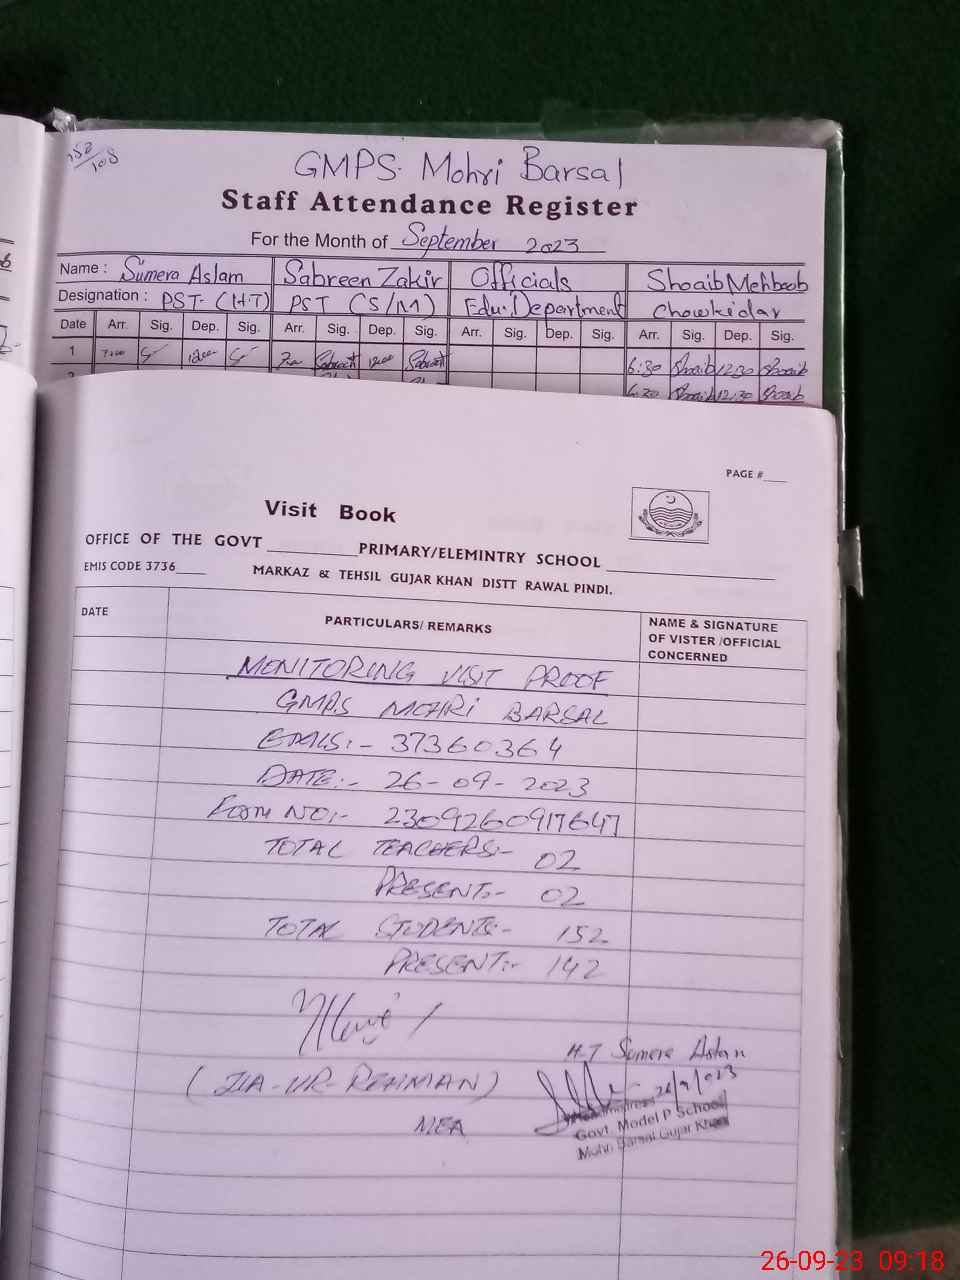 152/108
GMPS. Mohri Barsal
Staff Attendance Register
For the Month of September 2023
Name : Sumera Aslam Sabreen Zakir Officials Shoaib Mehboob
Designation : PST- (H-T) PST (S/M) Edu. Department Chowkidar
Date Arr. Sig. Dep. Sig. Arr. Sig. Dep. Sig. Arr. Sig. Dep. Sig. Arr. Sig. Dep. Sig.
1 6:30 Shoaib 12:30 Shoaib
6:30 Shoaib 12:30 Shoaib
PAGE #
Visit Book
OFFICE OF THE GOVT PRIMARY/ELEMINTRY SCHOOL
EMIS CODE 3736 MARKAZ & TEHSIL GUJAR KHAN DISTT RAWAL PINDI.
DATE PARTICULARS/ REMARKS NAME & SIGNATURE OF VISTER /OFFICIAL CONCERNED
MONITORING VISIT PROOF
GMPS MOHRI BARSAL
EMIS:- 37360364
DATE:- 26-09-2023
Form NO:- 2309260917647
TOTAL TEACHERS:- 02
PRESENT:- 02
TOTAL STUDENTS:- 152
PRESENT:- 142
H-T Sumera Aslam
(ZIA-UR-REHMAN)
26/9/023
MEA
Govt. Model P School
Mohri Barsal Gujar Khan
26-09-23 09:18